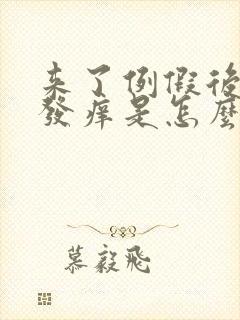 来了例假後
發痒是怎麼
慕毅飛